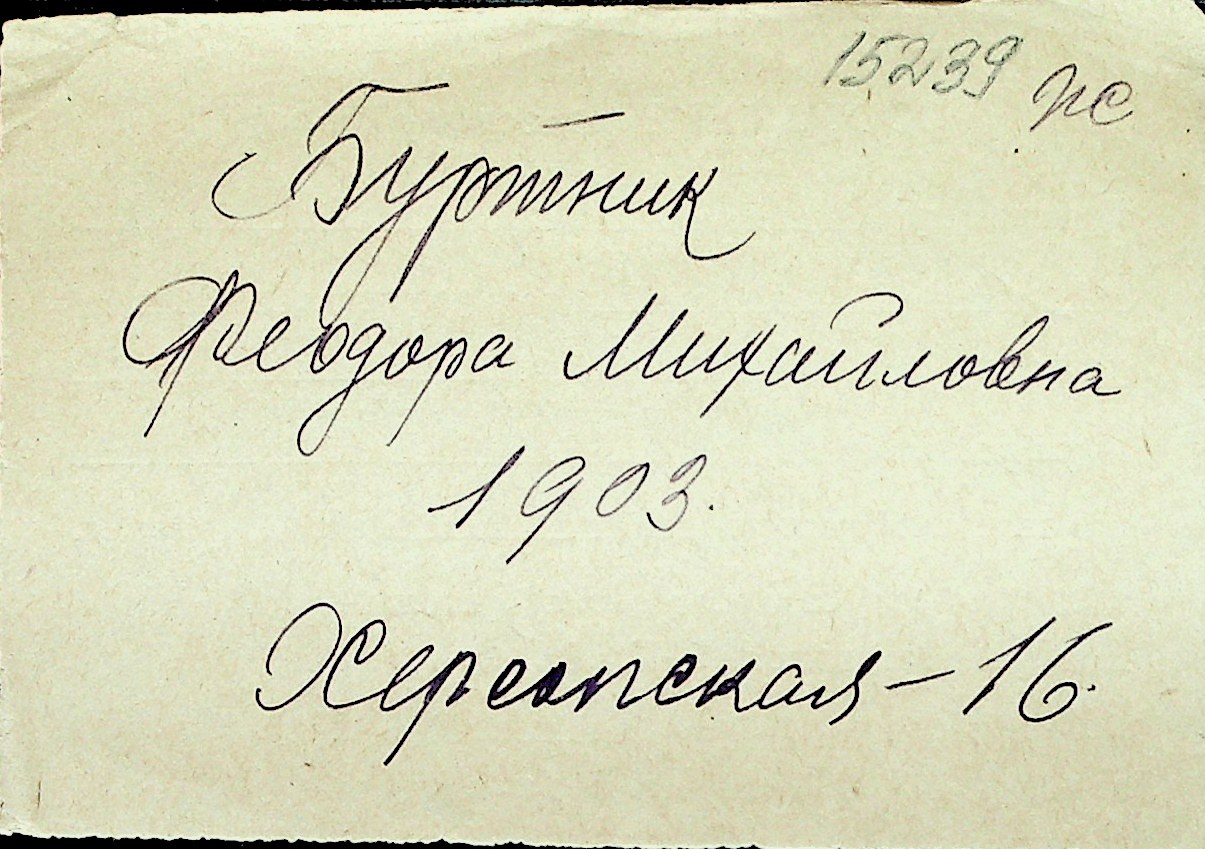 15239 пс
Буртник
Феодора Михайловна
1903.
Херсонская – 16.